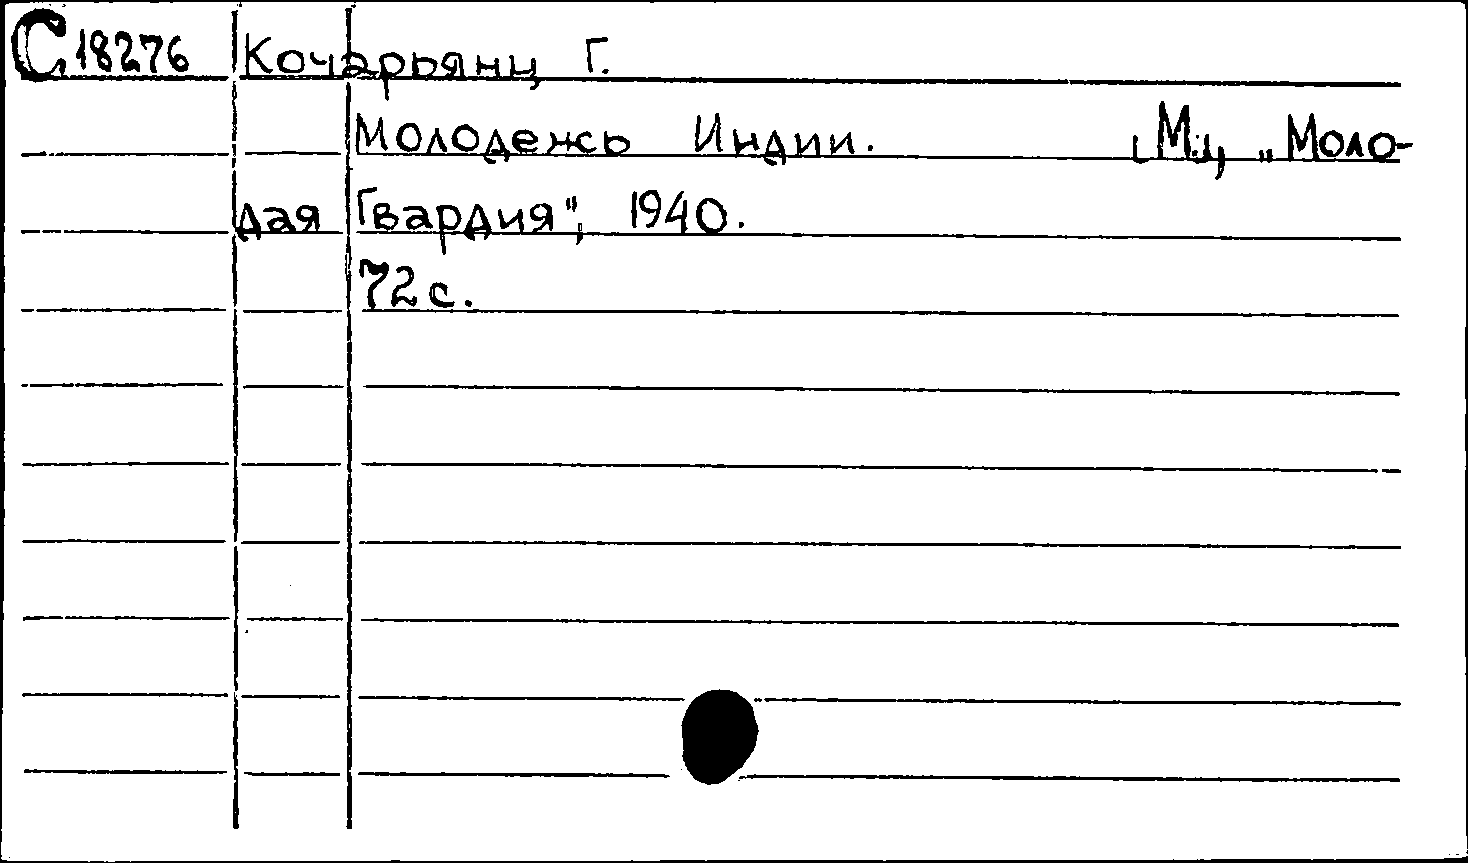 С18276 Кочарьянц Г.
Молодежь Индии. [М.], „Моло-
дая Гвардия", 1940.
72 с.